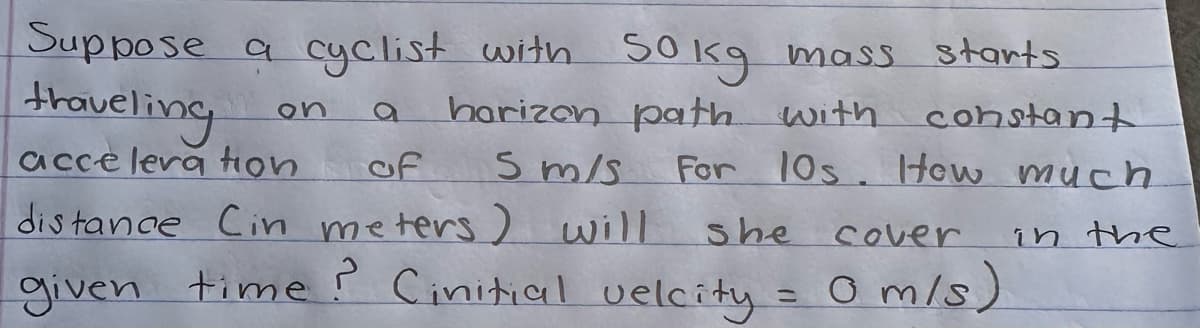 Suppose a cyclist with 50 kg mass starts
traveling on a horizon path with constant
acceleration of 5 m/s For 10s. How much
distance (in meters) will she cover in the
given time? (initial velcity = 0 m/s)